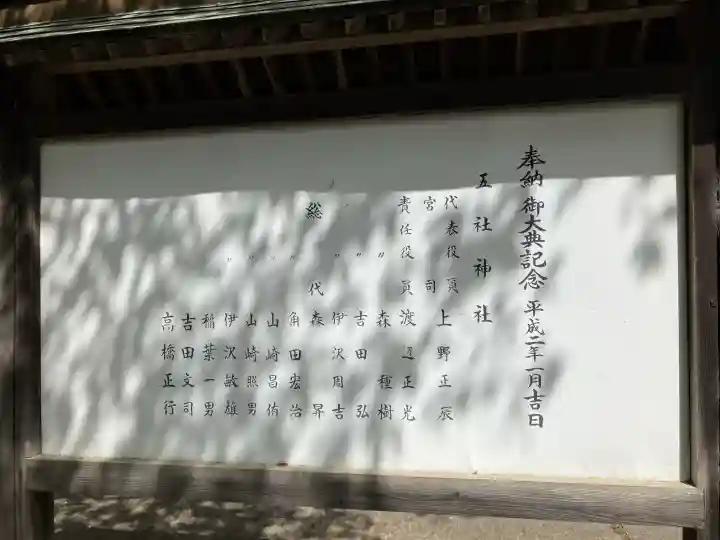 奉納 御大典記念 平成二年一月吉日
五社神社
代表役員
宮司 上野正辰
責任役員 渡辺正光
〃 森種樹
〃 吉田弘
〃 伊沢周吉
総代 森昇
角田宏治
山崎昌侑
山崎照男
〃 伊沢敏雄
〃 稲葉一男
吉田文司
高橋正行